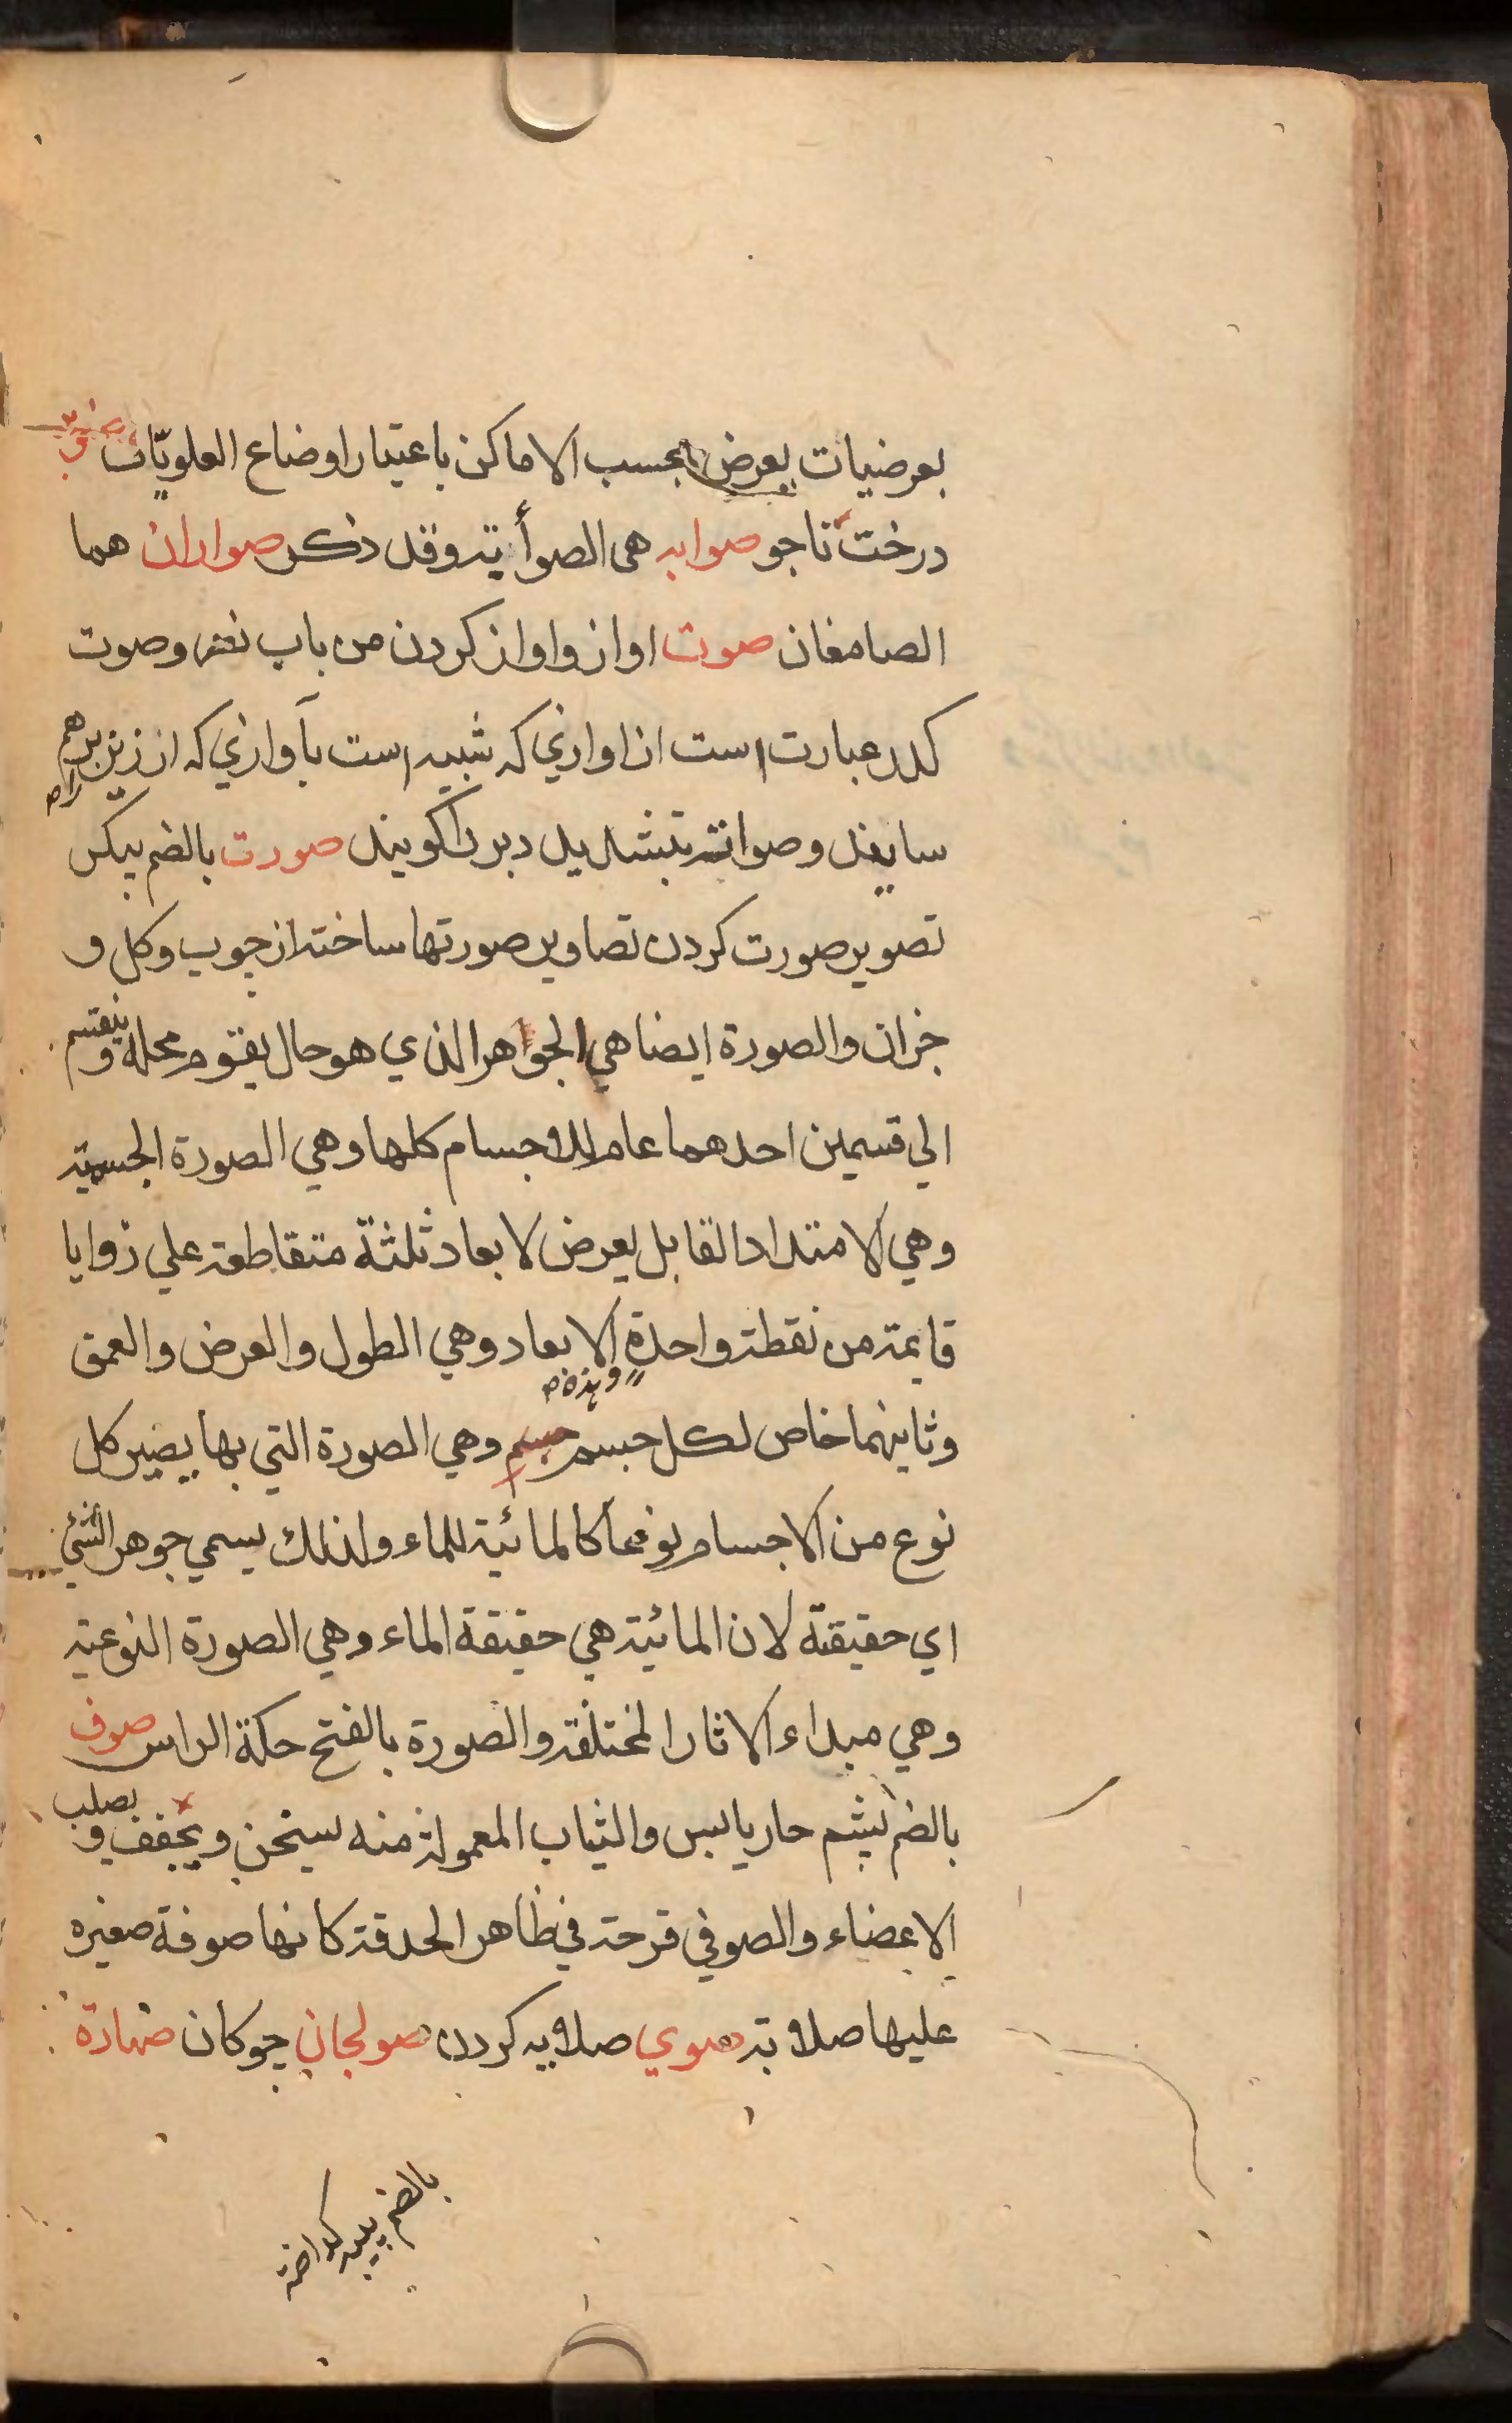 بعرضيات يعرض بحسب الاماكن باعتبار اوضاع العلويّات
درخت ناجو صوابه هى الصوأبة وقد ذكر صواران هما
الصامغان صوت اواز واواز كردن من باب نصر وصوت
كدر عبارت است از اوازي كه شبيه است بآوازي كه از زيز برهم
سايند وصوانت بتشديد دبر را كويند صورت بالضم پيكر
تصوير صورت كردن تصاوير صورتها ساخته از چوب وكل و
جزان والصورة ايضا هي الجواهر الذي هو حال يقوم محله وينقسم
الي قسمين احدهما عام للاجسام كلها وهي الصورة الجسمية
وهي الامتداد القابل يعرض لابعاد ثلثة متقاطعة علي زوايا
قايمة من نقطة واحدة وهذه الابعاد وهي الطول والعرض والعمق
وثانيهما خاص لكل جسم جسم وهي الصورة التي بها يصير كل
نوع من الاجسام نوعا كالمائية للماء ولذلك يسمي جوهر الشئ
اي حقيقة لان المائية هي حقيقة الماء وهي الصورة النوعية
وهي مبداء الاثار المختلفة والصورة بالفتح حكة الراس صوف
بالضم پشم حار يابس والثياب المعمولة منه يسخن ويجفف و يصلب
الاعضاء والصوفي قرحة في ظاهر الحدقة كانها صوفة صغيره
عليها صلابة صوي صلابه كردن صولجان چوكان صهارة
بالضم پيه كداخته